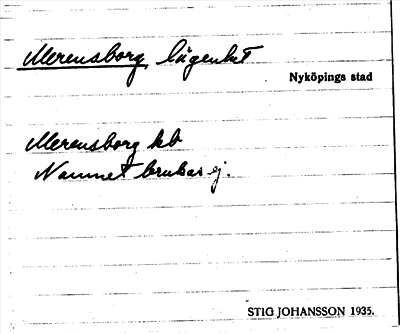 Merensborg, lägenhet
Nyköpings stad
Merensborg kb
Namnet brukas ej.
STIG JOHANSSON 1935.